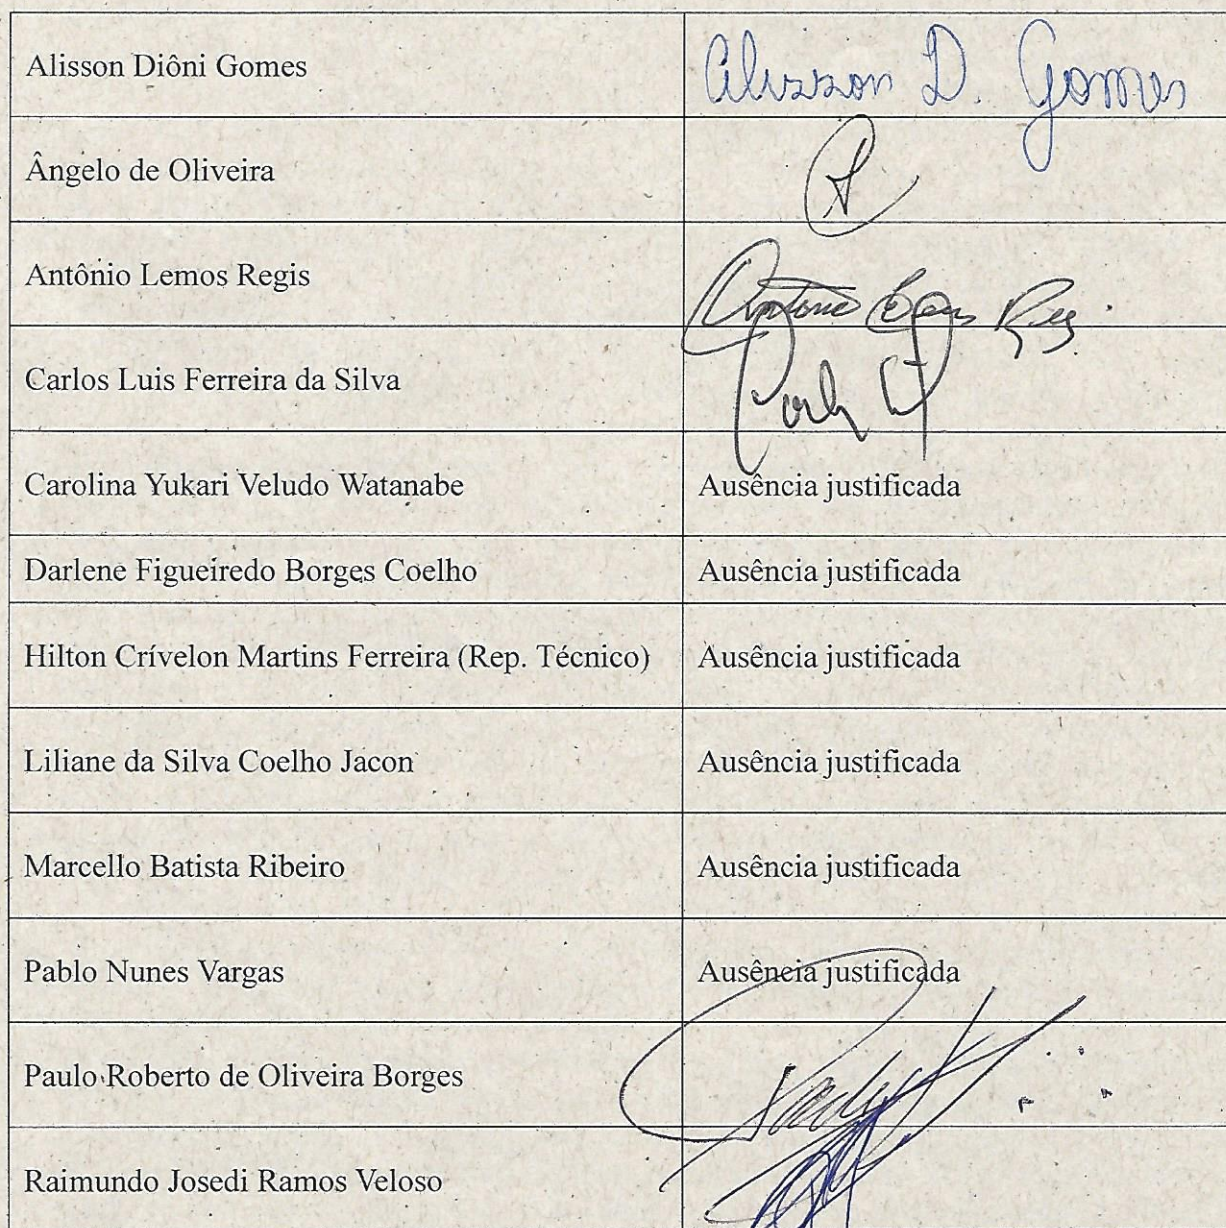 Alisson Diôni Gomes Alisson D. Gomes
Ângelo de Oliveira
Antônio Lemos Regis Antônio
Carlos Luis Ferreira da Silva
Carolina Yukari Veludo Watanabe Ausência justificada
Darlene Figueiredo Borges Coelho Ausência justificada
Hilton Crívelon Martins Ferreira (Rep. Técnico) Ausência justificada
Liliane da Silva Coelho Jacon Ausência justificada
Marcello Batista Ribeiro Ausência justificada
Pablo Nunes Vargas Ausência justificada
Paulo Roberto de Oliveira Borges
Raimundo Josedi Ramos Veloso